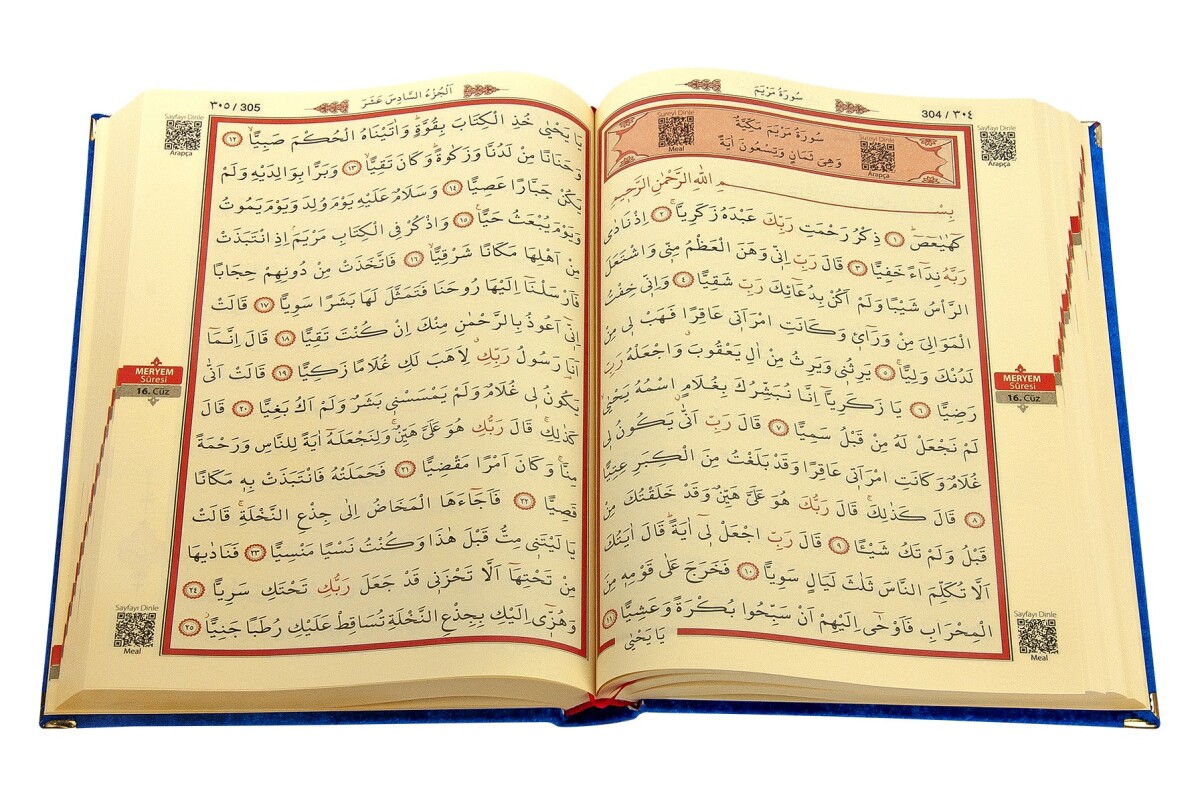 سُورَةُ مَرْيَمَ
304 / ٣٠٤
Sureyi Dinle
Meal
سُورَةُ مَرْيَمَ مَكِّيَّةٌ
وَهِيَ ثَمَانٍ وَتِسْعُونَ اٰيَةً
Arapça
Sayfayı Dinle
Arapça
بِسْــــــمِ اللّٰهِ الرَّحْمٰنِ الرَّحِيمِ
كٓهٰيٰعٓصٓ ۜ ﴿١﴾ ذِكْرُ رَحْمَتِ رَبِّكَ عَبْدَهُ زَكَرِيَّا ۚ ﴿٢﴾ اِذْ نَادٰى
رَبَّهُ نِدَٓاءً خَفِيًّا ﴿٣﴾ قَالَ رَبِّ اِنّ۪ي وَهَنَ الْعَظْمُ مِنّ۪ي وَاشْتَعَلَ
الرَّأْسُ شَيْبًا وَلَمْ اَكُنْ بِدُعَٓائِكَ رَبِّ شَقِيًّا ﴿٤﴾ وَاِنّ۪ي خِفْتُ
الْمَوَالِيَ مِنْ وَرَٓاء۪ي وَكَانَتِ امْرَاَت۪ي عَاقِرًا فَهَبْ ل۪ي مِنْ
لَدُنْكَ وَلِيًّا ۙ ﴿٥﴾ يَرِثُن۪ي وَيَرِثُ مِنْ اٰلِ يَعْقُوبَ وَاجْعَلْهُ رَبِّ
رَضِيًّا ﴿٦﴾ يَا زَكَرِيَّٓا اِنَّا نُبَشِّرُكَ بِغُلَامٍۨ اسْمُهُ يَحْيٰىۙ
لَمْ نَجْعَلْ لَهُ مِنْ قَبْلُ سَمِيًّا ﴿٧﴾ قَالَ رَبِّ اَنّٰى يَكُونُ ل۪ي
غُلَامٌ وَكَانَتِ امْرَاَت۪ي عَاقِرًا وَقَدْ بَلَغْتُ مِنَ الْكِبَرِ عِتِيًّا
﴿٨﴾ قَالَ كَذٰلِكَۚ قَالَ رَبُّكَ هُوَ عَلَيَّ هَيِّنٌ وَقَدْ خَلَقْتُكَ مِنْ
قَبْلُ وَلَمْ تَكُ شَيْـًٔا ﴿٩﴾ قَالَ رَبِّ اجْعَلْ ل۪ٓي اٰيَةًۜ قَالَ اٰيَتُكَ
اَلَّا تُكَلِّمَ النَّاسَ ثَلٰثَ لَيَالٍ سَوِيًّا ﴿١٠﴾ فَخَرَجَ عَلٰى قَوْمِه۪ مِنَ
الْمِحْرَابِ فَاَوْحٰٓى اِلَيْهِمْ اَنْ سَبِّحُوا بُكْرَةً وَعَشِيًّا ﴿١١﴾
يَا يَحْيٰى
MERYEM
Sûresi
16. Cüz
Sayfayı Dinle
Meal
اَلْجُزْءُ السَّادِسَ عَشَرَ
٣٠٥ / 305
Sayfayı Dinle
Arapça
يَا يَحْيٰى خُذِ الْكِتَابَ بِقُوَّةٍۜ وَاٰتَيْنَاهُ الْحُكْمَ صَبِيًّاۙ ﴿١٢﴾
وَحَنَانًا مِنْ لَدُنَّا وَزَكٰوةًۜ وَكَانَ تَقِيًّاۙ ﴿١٣﴾ وَبَرًّا بِوَالِدَيْهِ وَلَمْ
يَكُنْ جَبَّارًا عَصِيًّا ﴿١٤﴾ وَسَلَامٌ عَلَيْهِ يَوْمَ وُلِدَ وَيَوْمَ يَمُوتُ
وَيَوْمَ يُبْعَثُ حَيًّا۟ ﴿١٥﴾ وَاذْكُرْ فِي الْكِتَابِ مَرْيَمَۢ اِذِ انْتَبَذَتْ
مِنْ اَهْلِهَا مَكَانًا شَرْقِيًّاۙ ﴿١٦﴾ فَاتَّخَذَتْ مِنْ دُونِهِمْ حِجَابًا
فَاَرْسَلْنَٓا اِلَيْهَا رُوحَنَا فَتَمَثَّلَ لَهَا بَشَرًا سَوِيًّا ﴿١٧﴾ قَالَتْ
اِنّ۪ٓي اَعُوذُ بِالرَّحْمٰنِ مِنْكَ اِنْ كُنْتَ تَقِيًّا ﴿١٨﴾ قَالَ اِنَّمَٓا
اَنَا رَسُولُ رَبِّكِۗ لِاَهَبَ لَكِ غُلَامًا زَكِيًّا ﴿١٩﴾ قَالَتْ اَنّٰى
يَكُونُ ل۪ي غُلَامٌ وَلَمْ يَمْسَسْن۪ي بَشَرٌ وَلَمْ اَكُ بَغِيًّا ﴿٢٠﴾ قَالَ
كَذٰلِكِۚ قَالَ رَبُّكِ هُوَ عَلَيَّ هَيِّنٌۚ وَلِنَجْعَلَهُٓ اٰيَةً لِلنَّاسِ وَرَحْمَةً
مِنَّاۚ وَكَانَ اَمْرًا مَقْضِيًّا ﴿٢١﴾ فَحَمَلَتْهُ فَانْتَبَذَتْ بِه۪ مَكَانًا
قَصِيًّا ﴿٢٢﴾ فَاَجَٓاءَهَا الْمَخَاضُ اِلٰى جِذْعِ النَّخْلَةِۚ قَالَتْ
يَا لَيْتَن۪ي مِتُّ قَبْلَ هٰذَا وَكُنْتُ نَسْيًا مَنْسِيًّا ﴿٢٣﴾ فَنَادٰيهَا
مِنْ تَحْتِهَٓا اَلَّا تَحْزَن۪ي قَدْ جَعَلَ رَبُّكِ تَحْتَكِ سَرِيًّا ﴿٢٤﴾
وَهُزّ۪ٓي اِلَيْكِ بِجِذْعِ النَّخْلَةِ تُسَاقِطْ عَلَيْكِ رُطَبًا جَنِيًّاۘ ﴿٢٥﴾
MERYEM
Sûresi
16. Cüz
Sayfayı Dinle
Meal